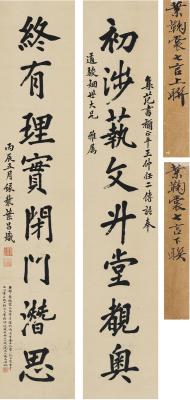 初涉藝文升堂覩奧
集范書禰正平王仲任二傳語奉
遺駿姻世大兄 雅屬
終有理實閉門潛思
丙辰五月 緣裻葉昌熾
葉鞠裳七言上聯
葉鞠裳七言下聯